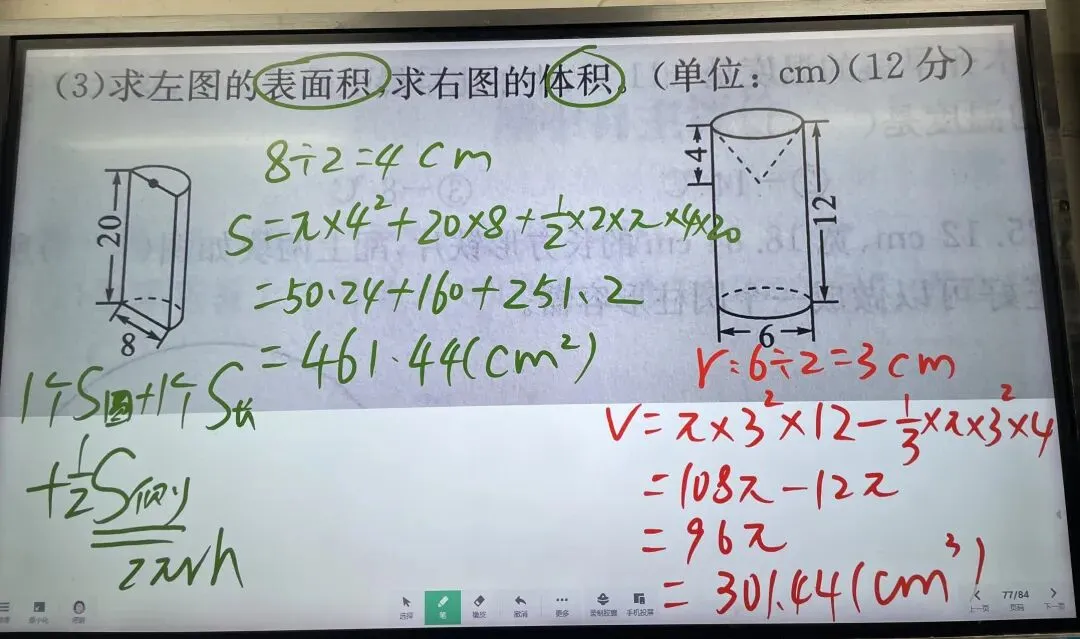 (3)求左图的表面积,求右图的体积。(单位:cm)(12分)
8÷2=4cm
S=π×4²+20×8+½×2×π×4×20
=50.24+160+251.2
=461.44(cm²)
1个S圆+1个S长
+½S侧
2πrh
20
8
4
12
6
r:6÷2=3cm
V=π×3²×12-⅓×π×3²×4
=108π-12π
=96π
=301.44(cm³)
选择
笔
橡皮
撤消
更多
录制胶囊
手机投屏
上一页
77/84
页码
下一页
最小化